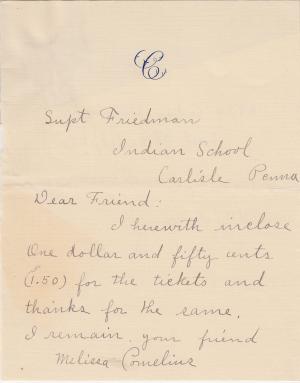 C
Supt Friedman
Indian School
Carlisle Penna
Dear Friend:
I herewith inclose
One dollar and fifty cents
(1.50) for the tickets and
thanks for the same.
I remain your friend
Melissa Cornelius